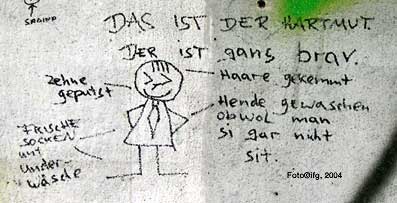 DAS IST DER HARTMUT.
DER IST gans brav.
Haare gekemmt
Zehne
geputst
Hende gewaschen
obwol man
si gar nicht
sit.
FRISCHE
SOCKEN
unt
Under-
wäsche
Foto©ifg, 2004